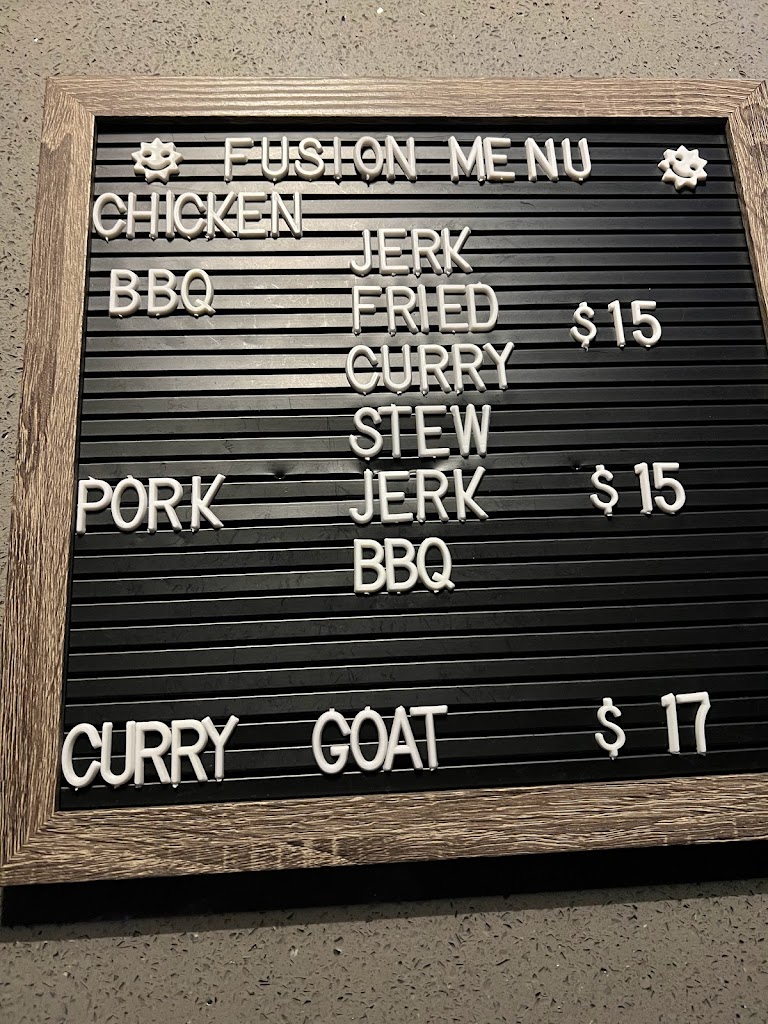 FUSION MENU
CHICKEN
JERK
BBQ
FRIED $15
CURRY
STEW
PORK JERK $15
BBQ
CURRY GOAT $17